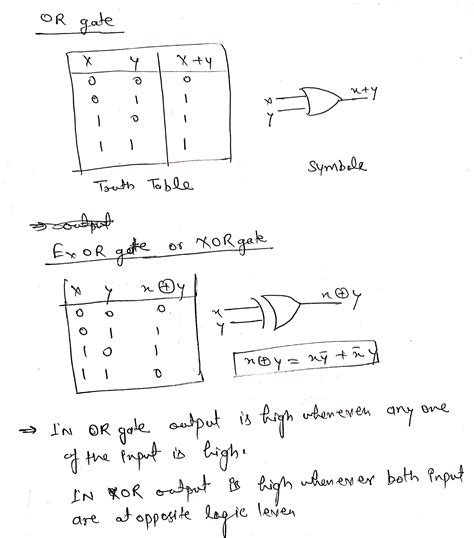 OR gate
X y X+y
0 0 0
0 1 1
1 0 1
1 1 1
x
y
x+y
Truth Table
Symbole
⇒ output
Ex OR gate or XOR gate
X y x⊕y
0 0 0
0 1 1
1 0 1
1 1 0
x
y
x⊕y
x⊕y = xȳ + x̄y
⇒ IN OR gate output is high whenever any one
of the input is high.
IN XOR output is high whenever both input
are at opposite logic level